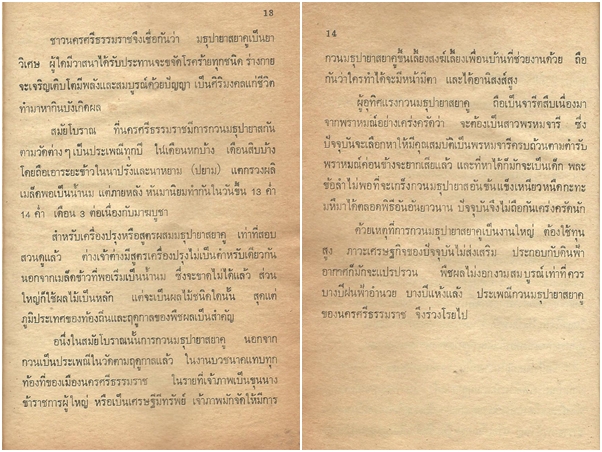 13
ชาวนครศรีธรรมราชจึงเชื่อกันว่า มธุปายาสยาคูเป็นยา
วิเศษ ผู้ใดมีวาสนาได้รับประทานจะขจัดโรคร้ายทุกชนิด ร่างกาย
จะเจริญเติบโตมีพลังและสมบูรณ์ด้วยปัญญา เป็นศิริมงคลแก่ชีวิต
ทำมาหากินบังเกิดผล
สมัยโบราณ ที่นครศรีธรรมราชมีการกวนมธุปายาสกัน
ตามวัดต่างๆ เป็นประเพณีทุกปี ในเดือนหกบ้าง เดือนสิบบ้าง
โดยถือเอาระยะข้าวในนาปรังและนาหยาม (ปยาม) แตกรวงผลิ
เมล็ดพอเป็นน้ำนม แต่ภายหลัง หันมานิยมทำกันในวันขึ้น 13 ค่ำ
14 ค่ำ เดือน 3 ต่อเนื่องกับมาฆบูชา
สำหรับเครื่องปรุงหรือสูตรผสมมธุปายาสยาคู เท่าที่สอบ
สวนดูแล้ว ต่างเจ้าต่างมีสูตรเครื่องปรุงไม่เป็นตำหรับเดียวกัน
นอกจากเมล็ดข้าวที่พอเริ่มเป็นน้ำนม ซึ่งจะขาดไม่ได้แล้ว ส่วน
ใหญ่ก็ใช้ผลไม้เป็นหลัก แต่จะเป็นผลไม้ชนิดใดนั้น สุดแต่
ภูมิประเทศของท้องถิ่นและฤดูกาลของพืชผลเป็นสำคัญ
อนึ่งในสมัยโบราณนั้นการกวนมธุปายาสยาคู นอกจาก
กวนเป็นประเพณีในวัดตามฤดูกาลแล้ว ในงานบวชนาคแทบทุก
ท้องที่ของเมืองนครศรีธรรมราช ในรายที่เจ้าภาพเป็นขุนนาง
ข้าราชการผู้ใหญ่ หรือเป็นเศรษฐีมีทรัพย์ เจ้าภาพมักจัดให้มีการ
14
กวนมธุปายาสยาคูขึ้นเลี้ยงสงฆ์เลี้ยงเพื่อนบ้านที่ช่วยงานด้วย ถือ
กันว่าใครทำได้จะมีหน้ามีตา และได้อานิสงส์สูง
ผู้อุทิศแรงกวนมธุปายาสยาคู ถือเป็นจารีตสืบเนื่องมา
จากพราหมณ์อย่างเคร่งครัดว่า จะต้องเป็นสาวพรหมจารี ซึ่ง
ปัจจุบันจะเลือกหาให้มีคุณสมบัติเป็นพรหมจารีครบถ้วนตามตำรับ
พราหมณ์ค่อนข้างจะยากเสียแล้ว และที่หาได้ก็มักจะเป็นเด็ก พละ
ข้อลำไม่พอที่จะเกร็งกวนมธุปายาสอันข้นแข็งเหนียวหนืดกะทะ
มหึมาได้ตลอดพิธีอันยาวนาน ปัจจุบันจึงไม่ถือกันเคร่งครัดนัก
ด้วยเหตุที่การกวนมธุปายาสยาคูเป็นงานใหญ่ ต้องใช้ทุน
สูง ภาวะเศรษฐกิจของปัจจุบันไม่ส่งเสริม ประกอบกับดินฟ้า
อากาศก็มักจะแปรปรวน พืชผลไม่งอกงามสมบูรณ์เท่าที่ควร
บางปีฝนฟ้าอำนวย บางปีแห้งแล้ง ประเพณีกวนมธุปายาสยาคู
ของนครศรีธรรมราช จึงร่วงโรยไป